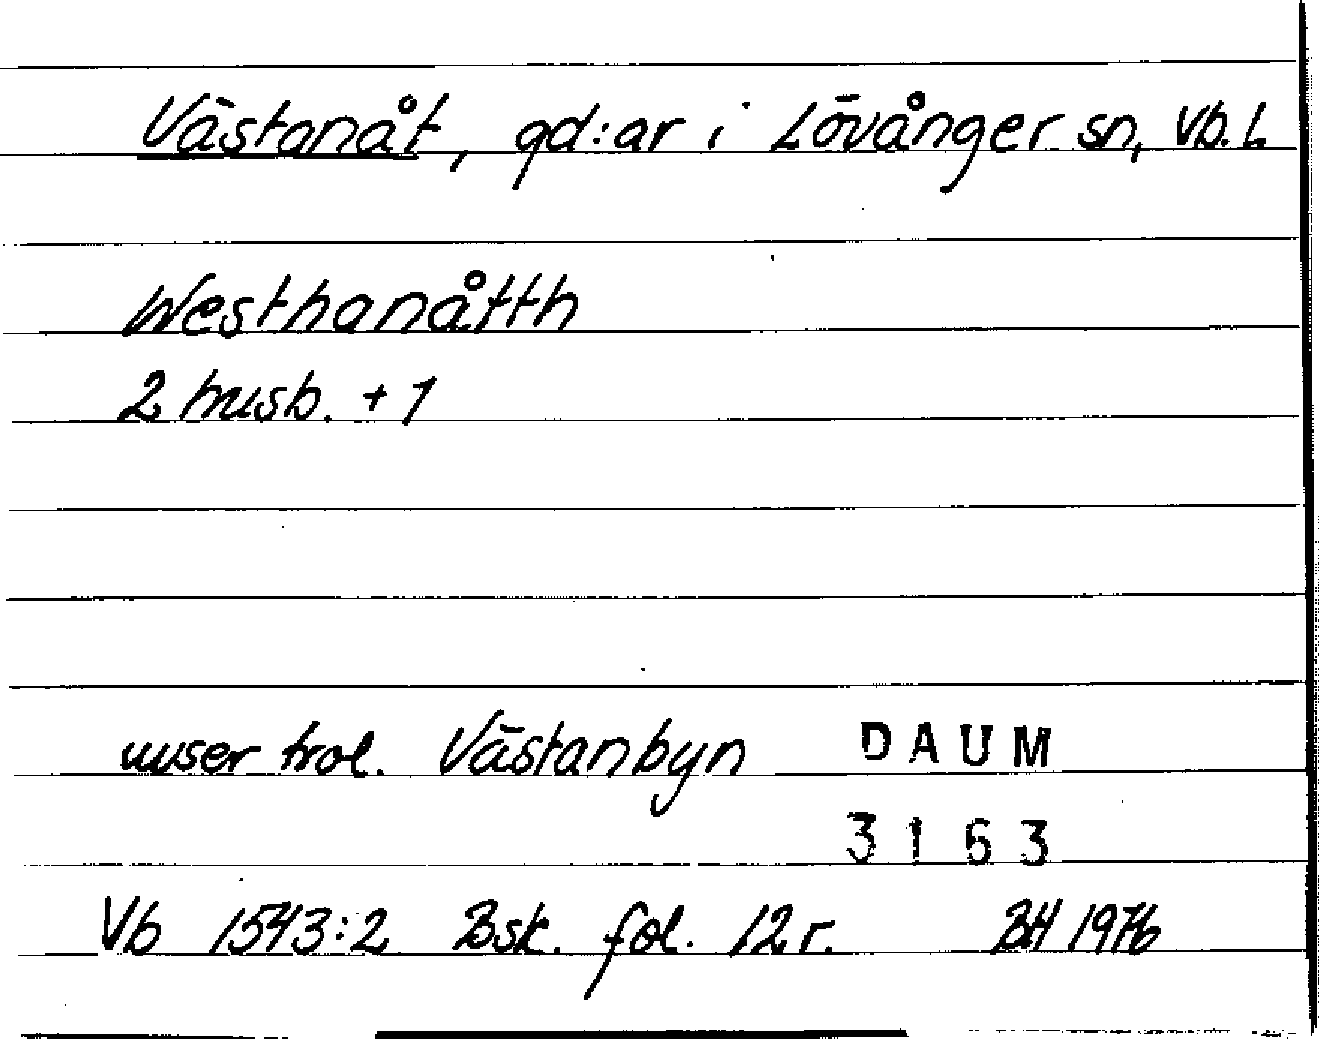 Västanåt, gd:ar i Lövånger sn, Vb. L
Westhanåtth
2 husb. + 1
avser trol. Västanbyn
DAUM
3163
Vb 1543:2 Bsk. fol. 12 r. BH 1976